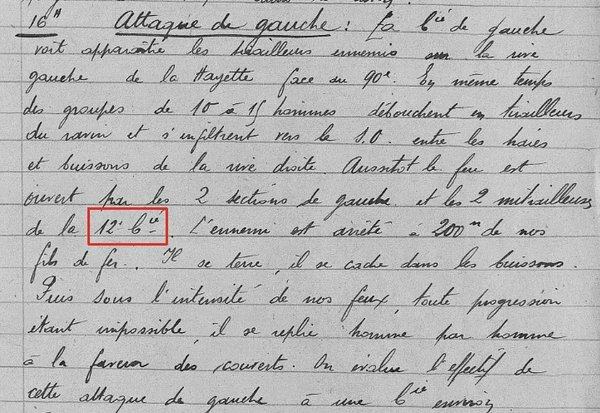 16h Attaque de gauche : La Cie de gauche
voit apparaître les tirailleurs ennemis sur la rive
gauche de la Hayette face au 90e. En même temps
des groupes de 10 à 15 hommes débouchent en tirailleurs
du ravin et s'infiltrent vers le S.O. entre les haies
et buissons de la rive droite. Aussitôt le feu est
ouvert par les 2 sections de gauche et les 2 mitrailleuses
de la 12e Cie. L'ennemi est arrêté à 200m de nos
fils de fer. Il se terre, il se cache dans les buissons.
Puis sous l'intensité de nos feux, toute progression
étant impossible, il se replie homme par homme
à la faveur des couverts. On évalue l'effectif de
cette attaque de gauche à une Cie environ